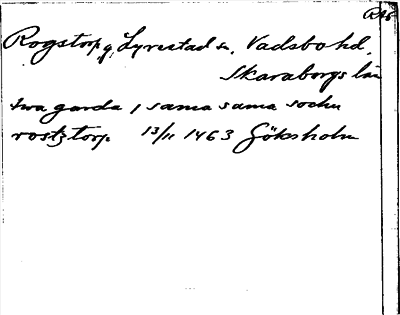 RAp
Rogstorp, g. Lyrestad sn, Vadsbo hd,
Skaraborgs län
twa garda j sama sama sochn
rostztorp 13/11 1463 Göksholm